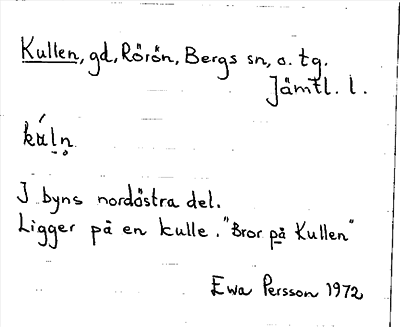 Kullen, gd, Rörön, Bergs sn, o. tg.
Jämtl. l.
kúḷṇ̥
I byns nordöstra del.
Ligger på en kulle. "Bror på Kullen"
Ewa Persson 1972